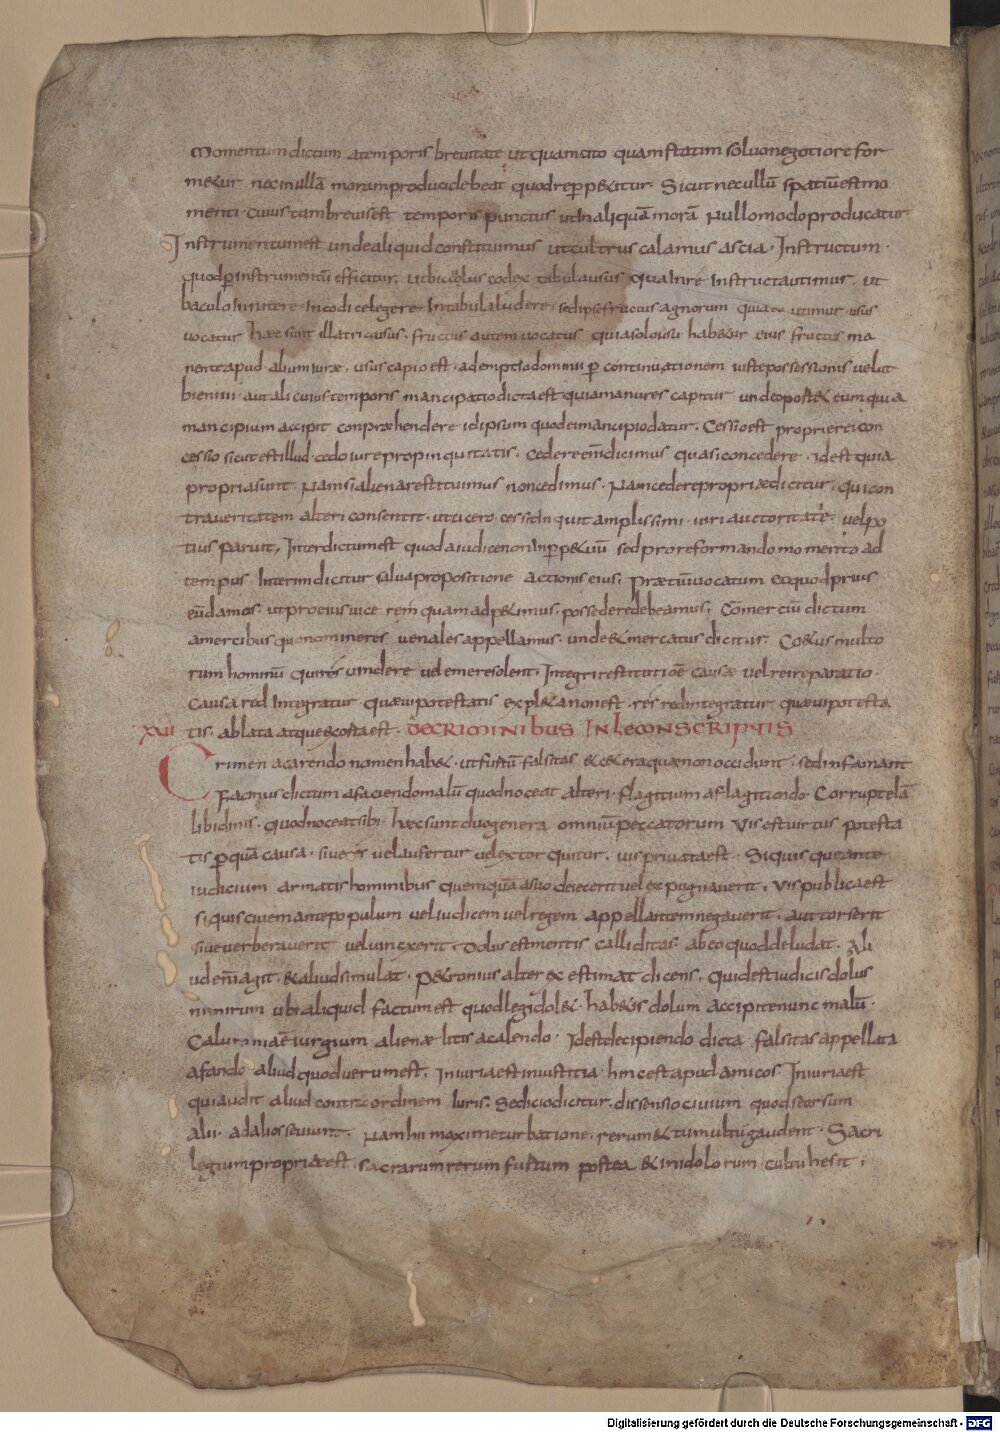 Momentum dictum a temporis brevitate ut quam cito quam statim salvo negotio refor
metur nec in ullā moram produci debeat quod repꝑ petitur. Sicut nec ullū spatiū est mo
menti. cuius tam brevis est temporis punctus ut in aliquā morā nullo modo producatur
Instrumentum est unde aliquid constituimus ut cultrus calamus ascia. Instructum.
quod ꝑ instrumentū efficitur. ut baculus codex tabula usus qua in re instructa utimur. ut
baculo in nitere. in codice legere. in tabula ludere. sed ipse fructus agnorum quia eo utimur usus
vocatur haec sunt illa tria usus. fructus autem vocatus quia solo usu habetur eius fructus ma
nente apud alium iure. usus capio est. ademptio dominii ꝑ continuationem iuste possessionis velut
biennii. aut alicuius temporis mancipatio dicta est quia manu res capitur unde oportet eum qui a
mancipium accipit conpraehendere id ipsum quod ei mancipio datur. Cessio est propriae rei con
cessio sicut est illud. cedo iure propinquitatis. Cedere enī dicimus quasi concedere. id est quia
propria sunt. Nam si aliena restituimus non cedimus. Nam cedere propriae dicitur. qui con
tra veritatem alteri consentit. ut cicero cessit inquit amplissimi viri auctoritate. vel po
tius paruit. Interdictum est quod a iudice non in ꝑpetuū sed pro reformando momento ad
tempus interim dicitur salva propositione actionis eius. Praetiū vocatum eo quod prius
eū damus. ut pro eius vice rem quam adpetimus. possedere debeamus. Cōmerciū dictum
a mercibus quo nomine res venales appellamus. unde et mercatus dicitur. Coetus multo
rum hominū qui res vindere vel emere solent. Integri restitutio ē causae vel rei reparatio.
causa redintegratur quae vi potestatis expleta non est. res redintegratur quae vi potesta
XXVI tis ablata atque extosta est. DE CRIMINIBUS IN LE CONSCRIPTIS
Crimen a carendo nomen habet. ut furtū. falsitas et cetera quae non occidunt. sed infamant
Facinus dictum a faciendo malū quod noceat alteri. flagitium a flagitando. Corruptelā
libidinis. quod noceat sibi. haec sunt duo genera omniū peccatorum Vis est virtus potesta
tis ꝑ quā causa. sive res vel aufertur vel extorquitur. vis privata est. Si quis quē ante
iudicium armatis hominibus quemquā a suo deiecerit vel expugnaverit. Vis publica est
si quis civem ante populum vel iudicem vel regem appellantem negaverit. aut torserit
sive verberaverit vel vinxerit. Dolus est mentis calliditas. ab eo quod deludat. Ali
ud enī agit. et aliud simulat. Petronius alter exestimat dicens. Quid est iudicis dolus
nimirum ubi aliquid factum est quod legi dolet. habetis dolum accipite nunc malū.
Calumnia ē iurgium alienae litis a calendo. Id est decipiendo dicta. falsitas appellata
a fando aliud quod verum est. Iniuria est iniustitia. hinc est apud amicos. Iniuria est
qui audit aliud contra ordinem iuris. Sediciodicitur. dissensio civium quod seorsum
alii. ad alios sevunt. Nam hii maxime turbatione. rerum et tumultu gaudent. Sacri
legium propriae est. sacrarum rerum furtum postea et in idolorum cultu hesit.
Digitalisierung gefördert durch die Deutsche Forschungsgemeinschaft - DFG